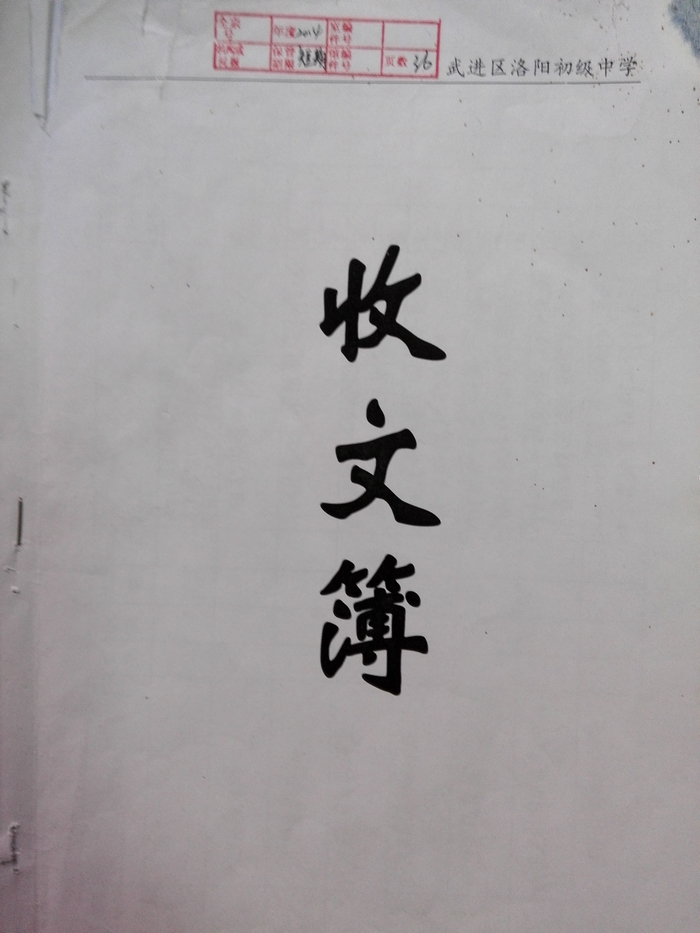 全宗号 年度 2014 室编件号
机构或问题 保管期限 短期 馆编件号 页数 36
武进区洛阳初级中学
收
文
簿